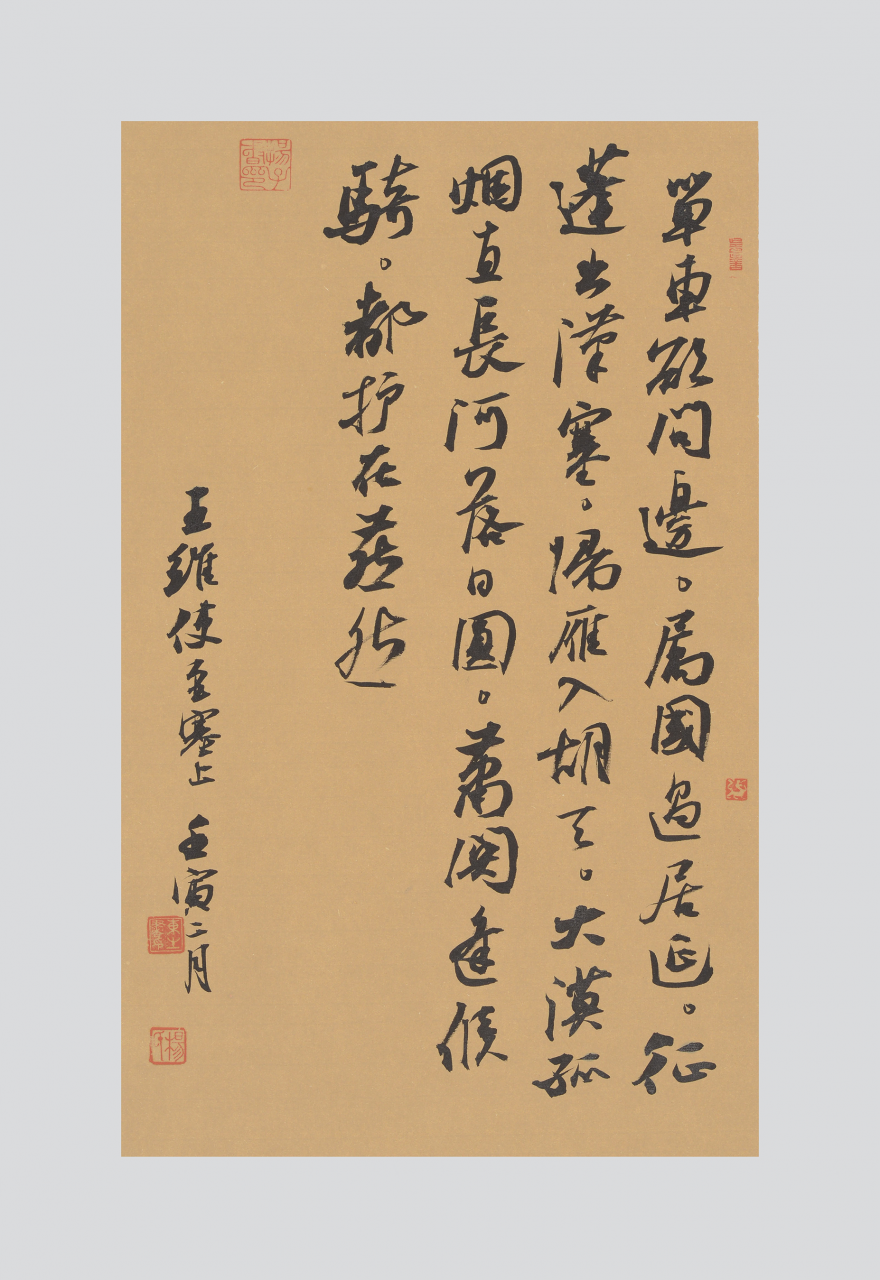 單車欲問邊。屬國過居延。征
蓬出漢塞。歸雁入胡天。大漠孤
烟直長河落日圓。蕭關逢候
騎。都护在燕然
王維使至塞上 壬寅二月